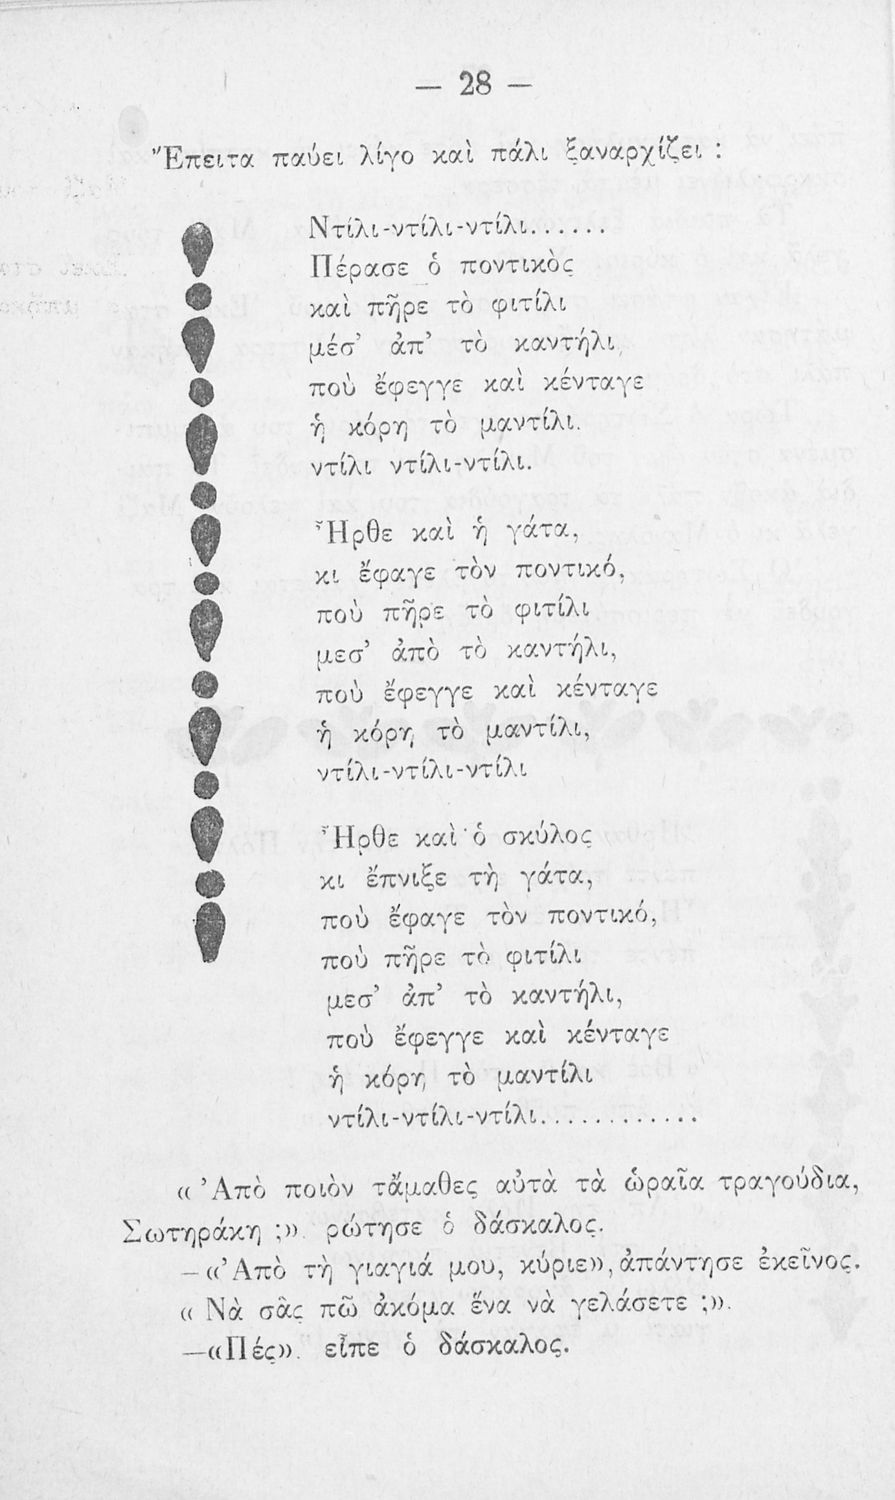 — 28 —
Ἔπειτα παύει λίγο καὶ πάλι ξαναρχίζει :
Ντίλι-ντίλι-ντίλι......
Πέρασε ὁ ποντικὸς
καὶ πῆρε τὸ φιτίλι
μέσ' ἀπ' τὸ καντήλι,
ποὺ ἔφεγγε καὶ κένταγε
ἡ κόρη τὸ μαντίλι.
ντίλι ντίλι-ντίλι.
Ἦρθε καὶ ἡ γάτα,
κι ἔφαγε τὸν ποντικό,
ποὺ πῆρε τὸ φιτίλι
μεσ' ἀπὸ τὸ καντήλι,
ποὺ ἔφεγγε καὶ κένταγε
ἡ κόρη τὸ μαντίλι,
ντίλι-ντίλι-ντίλι
Ἦρθε καὶ ὁ σκύλος
κι ἔπνιξε τὴ γάτα,
ποὺ ἔφαγε τὸν ποντικό,
ποὺ πῆρε τὸ φιτίλι
μεσ' ἀπ' τὸ καντήλι,
ποὺ ἔφεγγε καὶ κένταγε
ἡ κόρη τὸ μαντίλι
ντίλι-ντίλι-ντίλι............
« Ἀπὸ ποιὸν τἄμαθες αὐτὰ τὰ ὡραῖα τραγούδια,
Σωτηράκη ;». ρώτησε ὁ δάσκαλος.
—«Ἀπὸ τὴ γιαγιά μου, κύριε», ἀπάντησε ἐκεῖνος.
« Νὰ σᾶς πῶ ἀκόμα ἕνα νὰ γελάσετε ;».
—«Πές». εἶπε ὁ δάσκαλος.